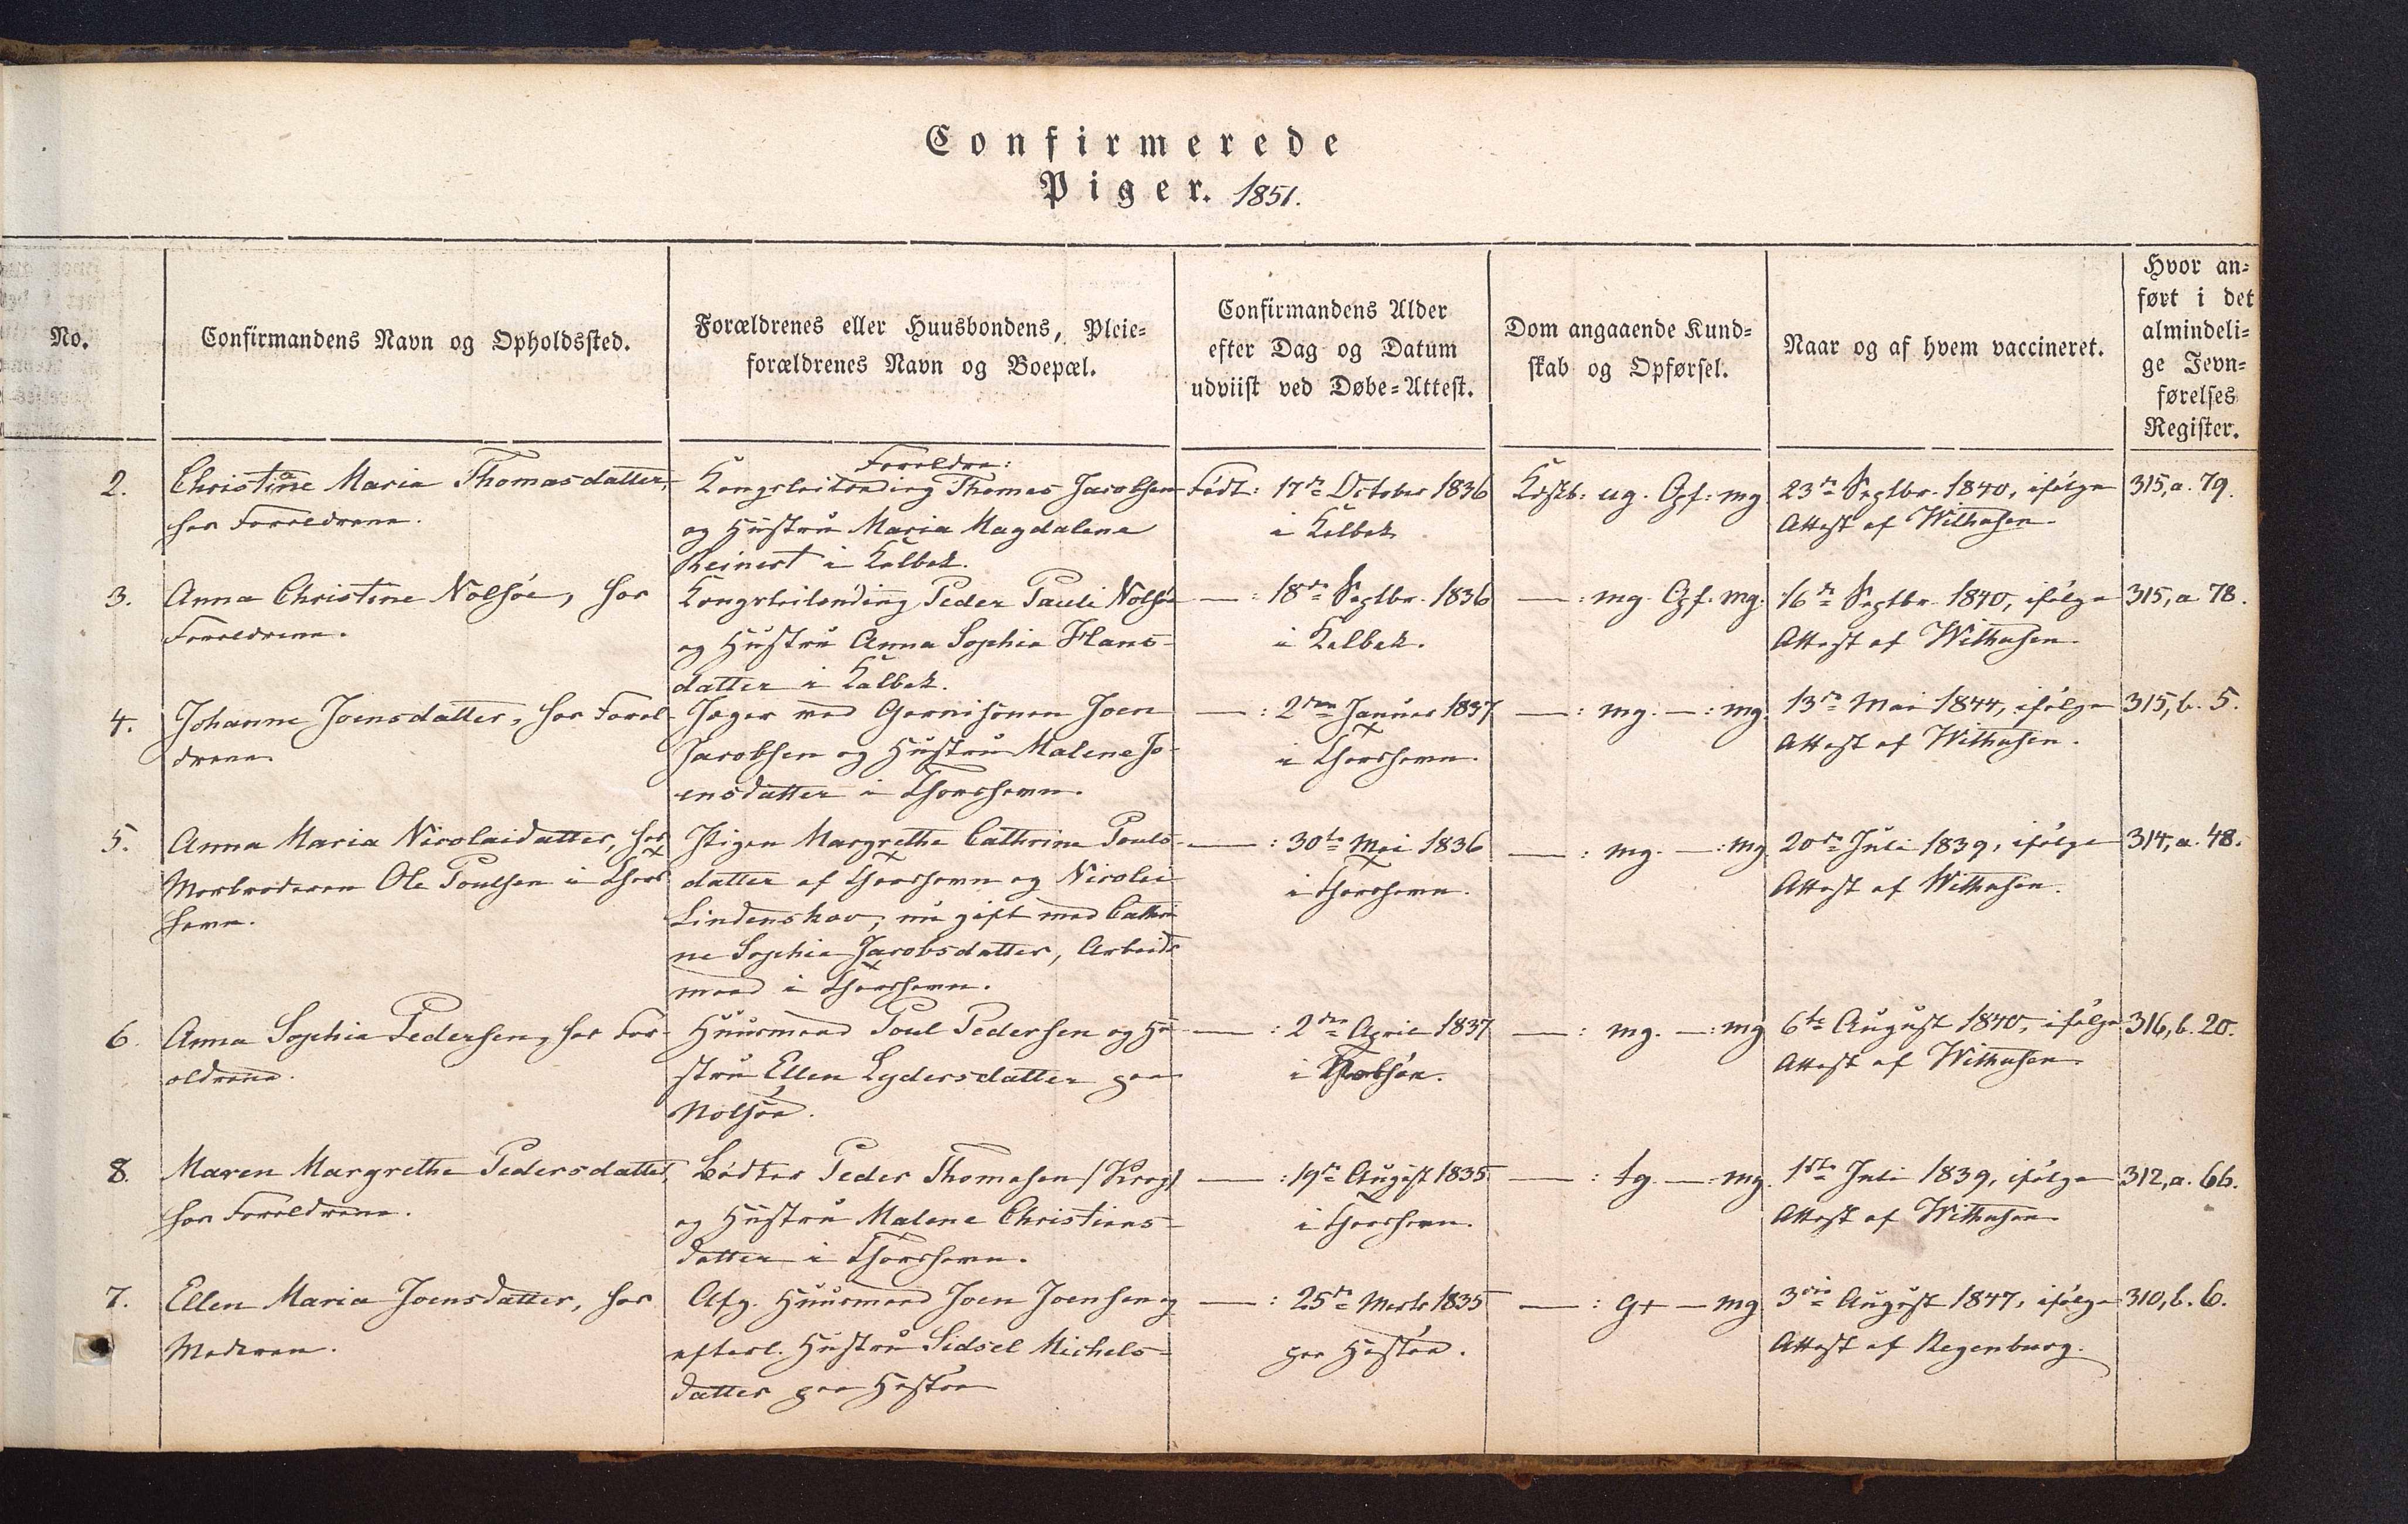 Confirmerede
Piger. 1851.
No.
Confirmandens Navn og Opholdssted.
Forældrenes eller Huusbondens, Pleie-
forældrenes Navn og Boepæl.
Confirmandens Alder
efter Dag og Datum
udviist ved Døbe-Attest.
Dom angaaende Kund-
skab og Opførsel.
Naar og af hvem vaccineret.
Hvor an-
ført i det
almindeli-
ge Jevn-
førelses
Register.
2.
Christine Maria Thomasdatter,
hos Forældrene.
Forældre:
Thomas Jacobsen
og Hustru Maria Magdalena
Reinert i Kalbak.
Født: 17de October 1836
i Kalbak
Kdskb: ug. Opf: mg
23de Septbr. 1840, ifølge
Attest af
315, a. 79.
3.
Anna Christine Nolsøe, hos
Forældrene.
Peder Pauli Nolsøe
og Hustru Anna Sophia Hans-
datter i Kalbak.
— : 18de Septbr. 1836
i Kalbak.
— : mg. Opf. mg.
16de Septbr. 1840, ifølge
Attest af
315, a 78.
4.
Johanne Joensdatter, hos Foræl-
drene
Jæger ved Garnisonen Joen
Jacobsen og Hustru Malene Jo-
ensdatter i Thorshavn.
— : 2den Januar 1837
i Thorshavn.
— : mg. — : mg.
13de Mai 1844, ifølge
Attest af
315, b. 5.
5.
Anna Maria Nicolaidatter, hos
Morbroderen Ole Poulsen i Thors
havn.
Pigen Margrethe Cathrine Pouls-
datter af Thorshavn og Nicolai
Lindenskov, nu gift med Cathri
ne Sophia Jacobsdatter, Arbeids
mand i Thorshavn.
— : 30te Mai 1836
i Thorshavn.
— : mg. — : mg.
20de Juli 1839, ifølge
Attest af
314, a. 48.
6.
Anna Sophia Pedersen, hos For-
ældrene.
Huusmand Poul Pedersen og Hu-
stru Ellen Lydersdatter paa
Nolsøe.
— : 2den April 1837
i
— : mg. — : mg
6te August 1840, ifølge
Attest af
316, b. 20.
8.
Maren Margrethe Pedersdatter,
hos Forældrene.
Bødker Peder Thomasen /Krog/
og Hustru Malene Christians-
datter i Thorshavn.
— : 19de August 1835
i Thorshavn.
— : tg. — : mg.
1ste Juli 1839, ifølge
Attest af
312, a. 66.
7.
Ellen Maria Joensdatter, hos
Moderen.
Afg. Huusmand Joen Joensen og
efterl. Hustru Sidsel Michels-
datter paa Hestøe
— : 25de Marts 1835
paa Hestøe.
— : g+ — mg
3die August 1847, ifølge
Attest af Regenburg.
310, b. 6.